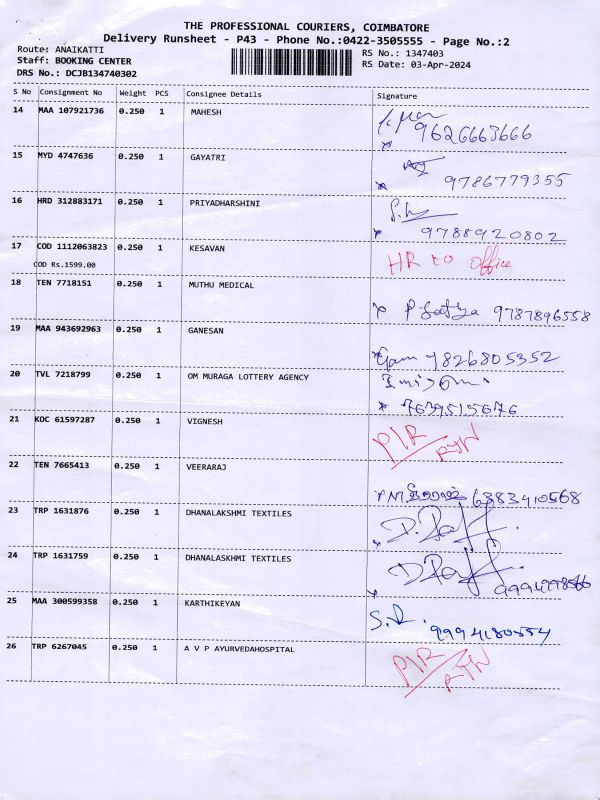 THE PROFESSIONAL COURIERS, COIMBATORE
Delivery Runsheet - P43 - Phone No.:0422-3505555 - Page No.:2
Route: ANAIKATTI
RS No.: 1347403
Staff: BOOKING CENTER
RS Date: 03-Apr-2024
DRS No.: DCJB134740302
S No Consignment No Weight PCS Consignee Details Signature
14 MAA 107921736 0.250 1 MAHESH
x 9626663666
15 MYD 4747636 0.250 1 GAYATRI
x 9786779355
16 HRD 312883171 0.250 1 PRIYADHARSHINI
x 9788920802
17 COD 1112063823 0.250 1 KESAVAN HR to office
COD Rs.1599.00
18 TEN 7718151 0.250 1 MUTHU MEDICAL
x P. Sathya 9787896558
19 MAA 943692963 0.250 1 GANESAN
9826805352
20 TVL 7218799 0.250 1 OM MURAGA LOTTERY AGENCY
x 7639515676
21 KOC 61597287 0.250 1 VIGNESH P/R RTN
22 TEN 7665413 0.250 1 VEERARAJ
6383410568
23 TRP 1631876 0.250 1 DHANALAKSHMI TEXTILES
24 TRP 1631759 0.250 1 DHANALASKHMI TEXTILES
25 MAA 300599358 0.250 1 KARTHIKEYAN
9994180554
26 TRP 6267045 0.250 1 A V P AYURVEDAHOSPITAL P/R RTN